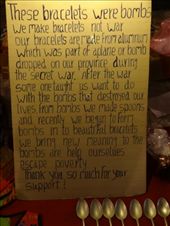 These bracelets were bombs
We make bracelets not war
our bracelets are made from aluminium
which was part of a plane or bomb
dropped on our province during
the secret war. After the war
some one taught us want to do
with the bombs that destroyed our
lives. from bombs we made spoons
and recently we begin to form
bombs in to beautiful bracelets
we bring new meaning to the
bombs are help ourselves
escape poverty
Thank you so much for your
support!